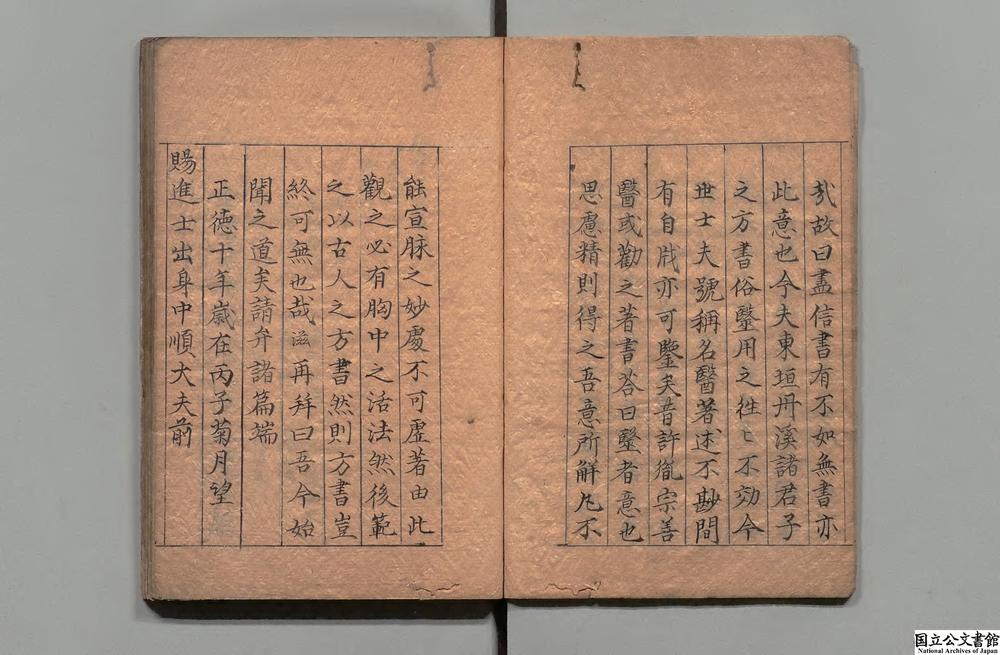 㢤故曰盡信書有不如無書亦
此意也今夫東垣丹溪諸君子
之方書俗毉用之徃〻不効今
世士夫號稱名醫著述不尠間
有自戕亦可鑒矣昔許胤宗善
醫或勸之著書荅曰毉者意也
思慮精則得之吾意所解凡不
能宣脉之妙處不可虛著由此
觀之必有胸中之活法然後範
之以古人之方書然則方書豈
終可無也哉滋再拜曰吾今始
聞之道矣請弁諸篇端
正德十年歲在丙子菊月望
賜進士出身中順大夫前
国立公文書館
National Archives of Japan